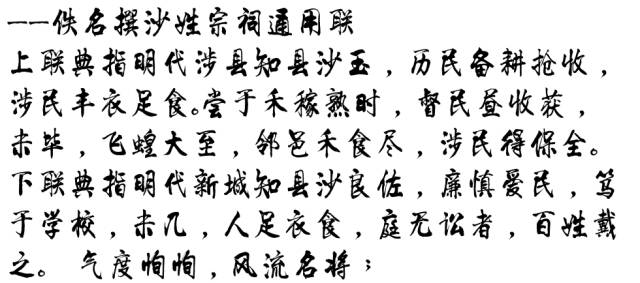 ——佚名撰沙姓宗祠通用联
上联典指明代涉县知县沙玉，历民备耕抢收，
涉民丰衣足食。尝于禾稼熟时，督民昼收获，
未毕，飞蝗大至，邻邑禾食尽，涉民得保全。
下联典指明代新城知县沙良佐，廉慎爱民，笃
于学校，未几，人足衣食，庭无讼者，百姓戴
之。 气度恂恂，风流名将；